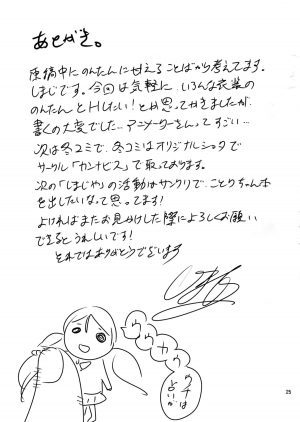 あとがき。
原稿中にのんたんに甘えることばかり考えてます。
しまじです。今回は気軽に、いろんな衣装の
のんたんとHしたい!とか思ってかきましたが
書くの大変でした…アニメーターさんってすごい…
次は冬コミで、冬コミはオリジナルショタで
サークル「カンナビス」で取っております。
次の「しまじや」の活動はサンクリで、ことりちゃん本
を出したいなって思ってます!
よければまたお見かけした際によろしくお願い
できるとうれしいです!
それではありがとうございます
ウチは
25